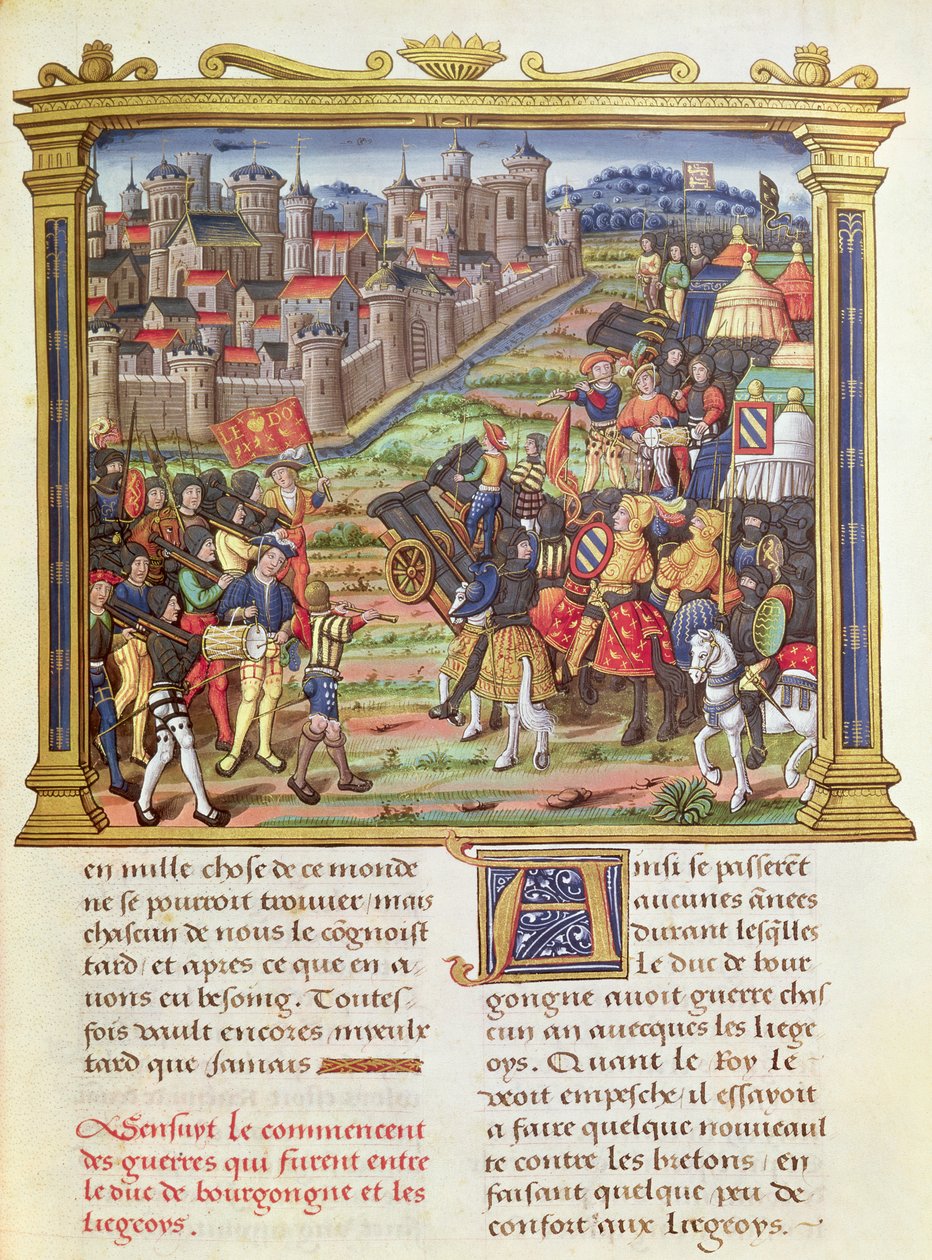 LE DO
en mille chose de ce monde
ne se pourroit trouuer / mais
chascun de nous le cōgnoist
tard / et apres ce que en a-
uons eu besoing. Toutes-
fois vault encores myeulx
tard que Jamais
Sensuyt le commencent
des guerres qui furent entre
le duc de bourgongne et les
liegeoys.
Ainsi se passerēt
aucunes ānees
durant lesq̄lles
le duc de bour
gongne auoit guerre chas
cun an auecques les liege
oys. Quant le Roy le
veoit empesche / il essayoit
a faire quelque nouueaul
te contre les bretons / en
faisant quelque peu de
confort aux liegeoys.